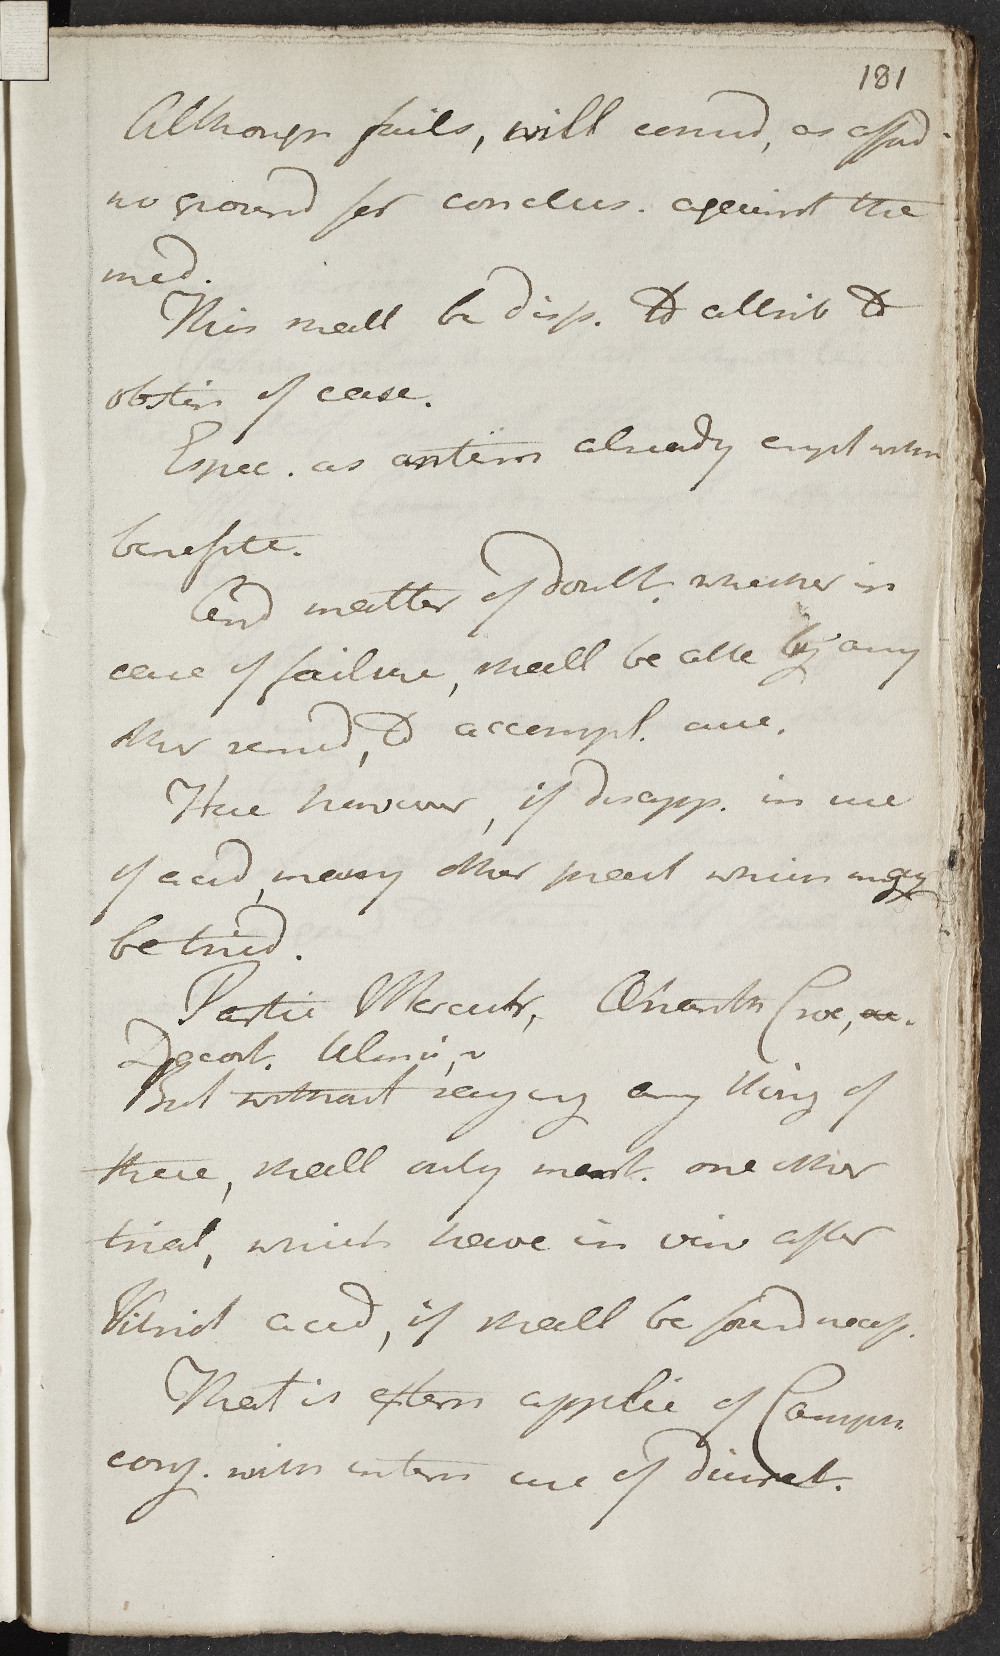 181
Although fails, will consid, as afford
no ground for conclus. against the
med.
This shall be disp. to attrib to
obstin of case.
Espec. as antim already empl with
benefite.
And matter of doubt. whether in
case of failure, shall be able by any
other remed, to accompl. cure.
Here however, if disapp. in use
of acid, many other pract which may
be tried.
Partic Mercur,
Decoct. Ulmi,
But without saying any thing of
these, shall only ment. one other
trial, which have in view after
Vitriol acid, if shall be found necess.
That is extern applic of Camph.
conj. with intern use of diuret.